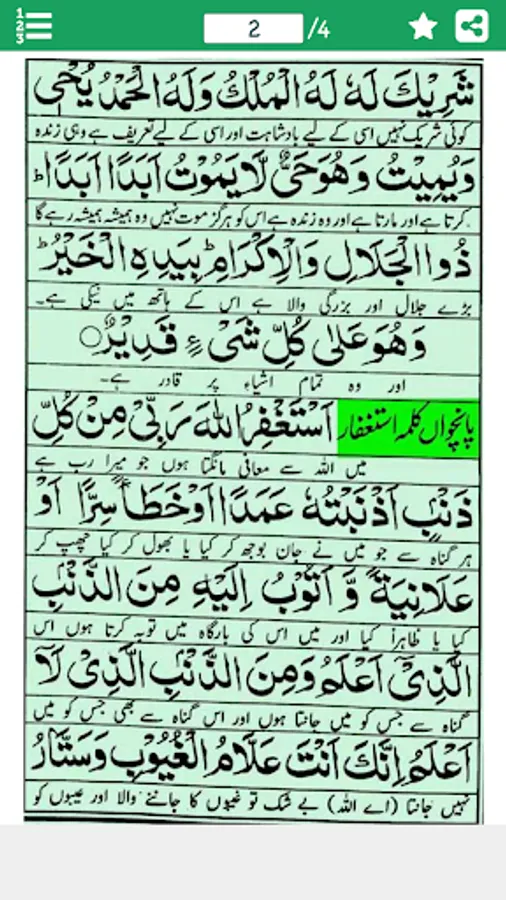 1
2
3
2 /4
شَرِيْكَ لَهٗ لَهُ الْمُلْكُ وَلَهُ الْحَمْدُ يُحْىٖ
کوئی شریک نہیں اسی کے لیے بادشاہت اور اسی کے لیے تعریف ہے وہی زندہ
وَيُمِيْتُ وَهُوَ حَىٌّ لَّا يَمُوْتُ اَبَدًا اَبَدًا ؕ
کرتا ہے اور مارتا ہے اور وہ زندہ ہے اس کو ہرگز موت نہیں وہ ہمیشہ ہمیشہ رہے گا
ذُوالْجَلَالِ وَالْاِكْرَامِ ؕ بِيَدِهِ الْخَيْرُ ؕ
بڑے جلال اور بزرگی والا ہے اس کے ہاتھ میں نیکی ہے۔
وَهُوَ عَلٰى كُلِّ شَىْءٍ قَدِيْرٌ ○
اور وہ تمام اشیاء پر قادر ہے۔
پانچواں کلمہ استغفار اَسْتَغْفِرُ اللهَ رَبِّىْ مِنْ كُلِّ
میں اللہ سے معافی مانگتا ہوں جو میرا رب ہے
ذَنْۢبٍ اَذْنَبْتُهٗ عَمَدًا اَوْ خَطَأً سِرًّا اَوْ
ہر گناہ سے جو میں نے جان بوجھ کر کیا یا بھول کر کیا چھپ کر
عَلَانِيَةً وَّ اَتُوْبُ اِلَيْهِ مِنَ الذَّنْۢبِ
کیا یا ظاہراً کیا اور میں اس کی بارگاہ میں توبہ کرتا ہوں اس
الَّذِىْٓ اَعْلَمُ وَمِنَ الذَّنْۢبِ الَّذِىْ لَآ
گناہ سے جس کو میں جانتا ہوں اور اس گناہ سے بھی جس کو میں
اَعْلَمُ اِنَّكَ اَنْتَ عَلَّامُ الْغُيُوْبِ وَسَتَّارُ
نہیں جانتا (اے اللہ) بے شک تو غیبوں کا جاننے والا اور عیبوں کو